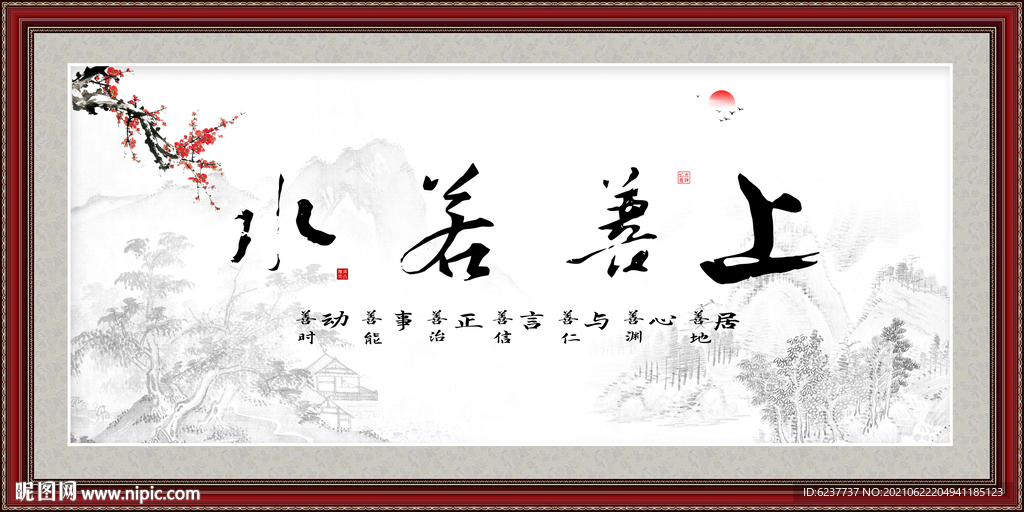 上善若水
居善地
心善渊
与善仁
言善信
正善治
事善能
动善时
昵图网 www.nipic.com
ID:6237737 NO:20210622204941185123